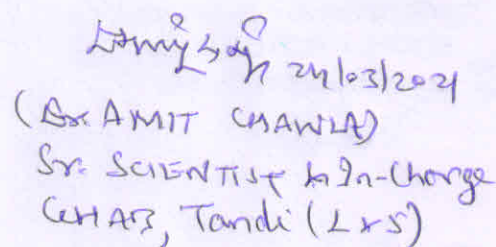 24/03/2021
(Dr. AMIT CHAWLA)
Sr. SCIENTIST & In-Charge
CeHAB, Tandi (L&S)